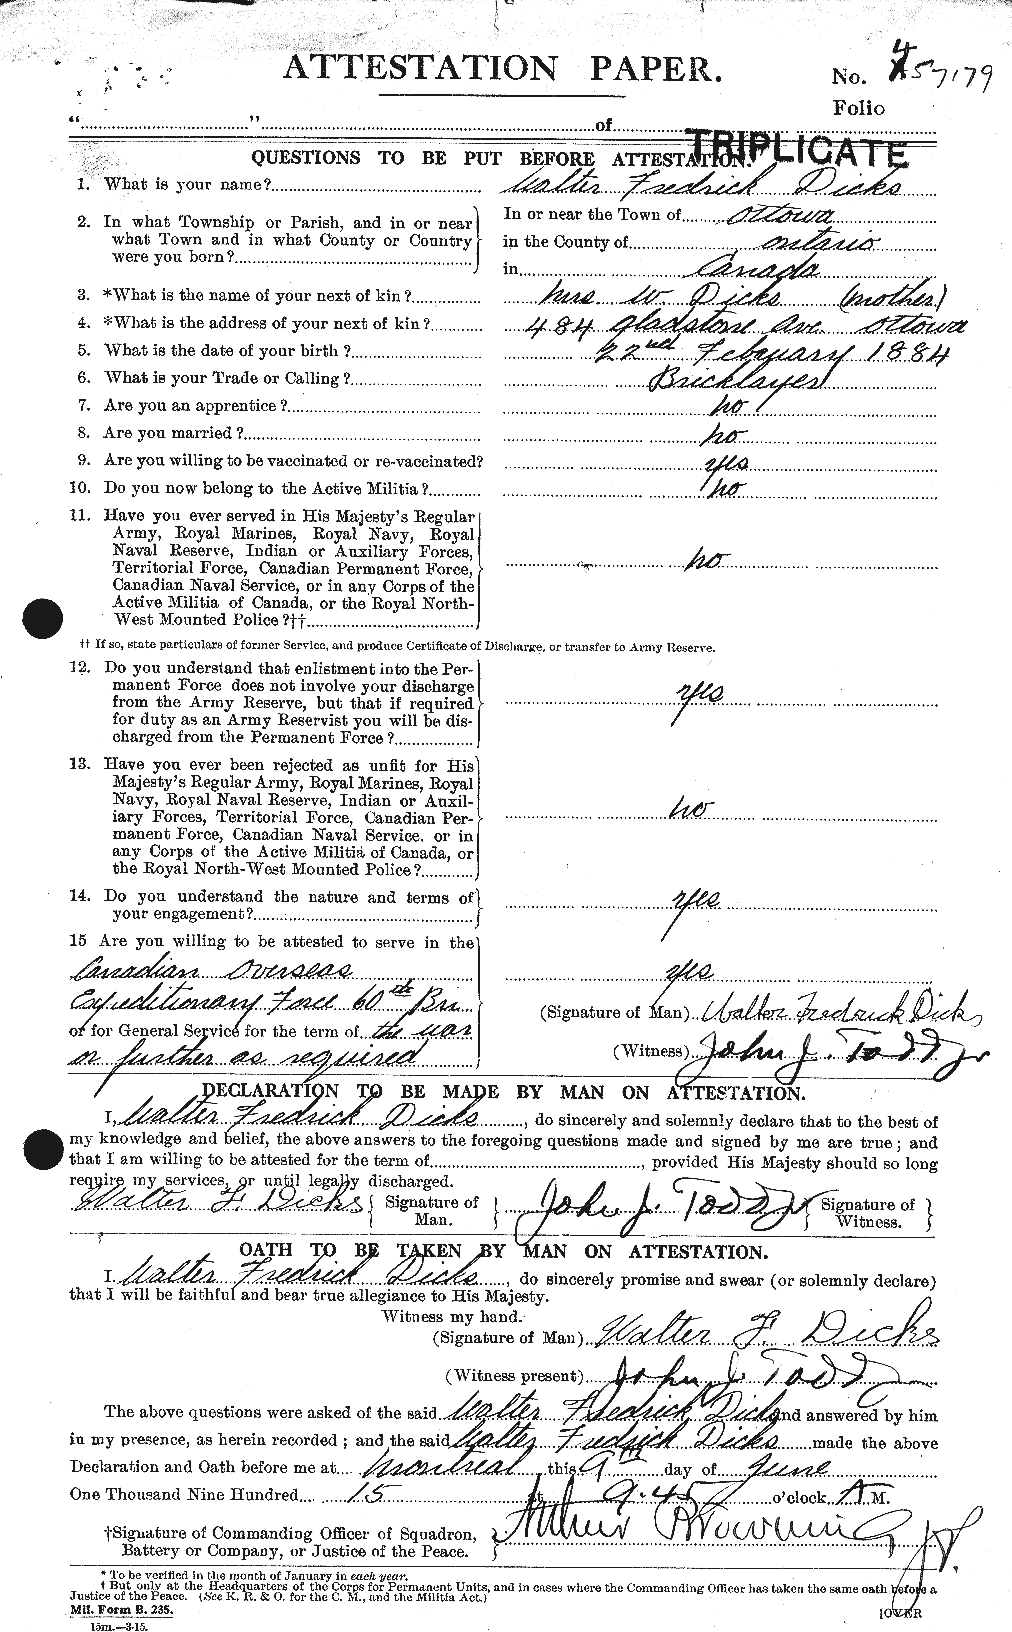 ATTESTATION PAPER.
No. 457179
Folio
"............" ............of............
TRIPLICATE
QUESTIONS TO BE PUT BEFORE ATTESTATION.
1. What is your name? Walter Fredrick Dicks
2. In what Township or Parish, and in or near what Town and in what County or Country were you born?
In or near the Town of Ottowa
in the County of Ontario
in Canada
3. *What is the name of your next of kin? Mrs W. Dicks (mother)
4. *What is the address of your next of kin? 484 Gladstone Ave Ottowa
5. What is the date of your birth? 22nd February 1884
6. What is your Trade or Calling? Bricklayer
7. Are you an apprentice? no
8. Are you married? no
9. Are you willing to be vaccinated or re-vaccinated? yes
10. Do you now belong to the Active Militia? no
11. Have you ever served in His Majesty's Regular
Army, Royal Marines, Royal Navy, Royal
Naval Reserve, Indian or Auxiliary Forces,
Territorial Force, Canadian Permanent Force,
Canadian Naval Service, or in any Corps of the
Active Militia of Canada, or the Royal North-
West Mounted Police?†† no
†† If so, state particulars of former Service, and produce Certificate of Discharge, or transfer to Army Reserve.
12. Do you understand that enlistment into the Per-
manent Force does not involve your discharge
from the Army Reserve, but that if required
for duty as an Army Reservist you will be dis-
charged from the Permanent Force? yes
13. Have you ever been rejected as unfit for His
Majesty's Regular Army, Royal Marines, Royal
Navy, Royal Naval Reserve, Indian or Auxil-
iary Forces, Territorial Force, Canadian Per-
manent Force, Canadian Naval Service. or in
any Corps of the Active Militia of Canada, or
the Royal North-West Mounted Police? no
14. Do you understand the nature and terms of
your engagement? yes
15 Are you willing to be attested to serve in the
Canadian Overseas yes
Expeditionary Force 60th Bn
(Signature of Man) Walter Fredrick Dicks
or for General Service for the term of the war
or further as required
(Witness) John J. Todd Jr
DECLARATION TO BE MADE BY MAN ON ATTESTATION.
I, Walter Fredrick Dicks, do sincerely and solemnly declare that to the best of
my knowledge and belief, the above answers to the foregoing questions made and signed by me are true; and
that I am willing to be attested for the term of............, provided His Majesty should so long
require my services, or until legally discharged.
Walter F Dicks { Signature of Man. } John J. Todd Jr { Signature of Witness. }
OATH TO BE TAKEN BY MAN ON ATTESTATION.
I. Walter Fredrick Dicks, do sincerely promise and swear (or solemnly declare)
that I will be faithful and bear true allegiance to His Majesty.
Witness my hand.
(Signature of Man) Walter F. Dicks
(Witness present) John J. Todd Jr
The above questions were asked of the said Walter Fredrick Dicks and answered by him
in my presence, as herein recorded; and the said Walter Fredrick Dicks made the above
Declaration and Oath before me at Montreal this 9th day of June
One Thousand Nine Hundred 15 at 9.45 o'clock A M.
†Signature of Commanding Officer of Squadron,
Battery or Company, or Justice of the Peace.
Arthur Browning J.P.
* To be verified in the month of January in each year.
† But only at the Headquarters of the Corps for Permanent Units, and in cases where the Commanding Officer has taken the same oath before a
Justice of the Peace. (See K. R. & O. for the C. M., and the Militia Act.)
Mil. Form B. 235.
15m.—3-15.
[OVER